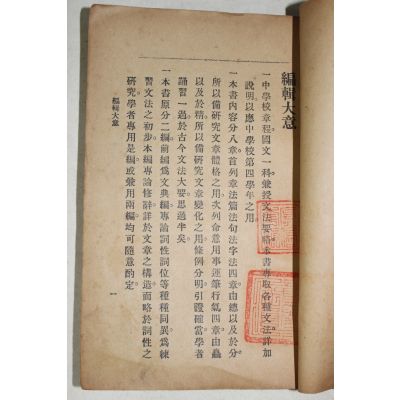 編輯大意
一中學校章程國文一科兼授文法要略本書專取各種文法詳加
說明以應中學校第四學年之用
一本書內容分八章首列章法篇法句法字法四章由總以及於分
所以備研究文章體格之用次列命意用事運筆行氣四章由蟲
以及於精所以備研究文章變化之用條例分明引證確當學者
誦習一過於古今文法大要思過半矣
一本書原分二編前編爲文典編專論詞性詞位等種種同異爲練
習文法之初步本編專論修辭詳於文章之構造而略於詞性之
研究學者專用是編或兼用兩編均可隨意酌定
編輯大意
一